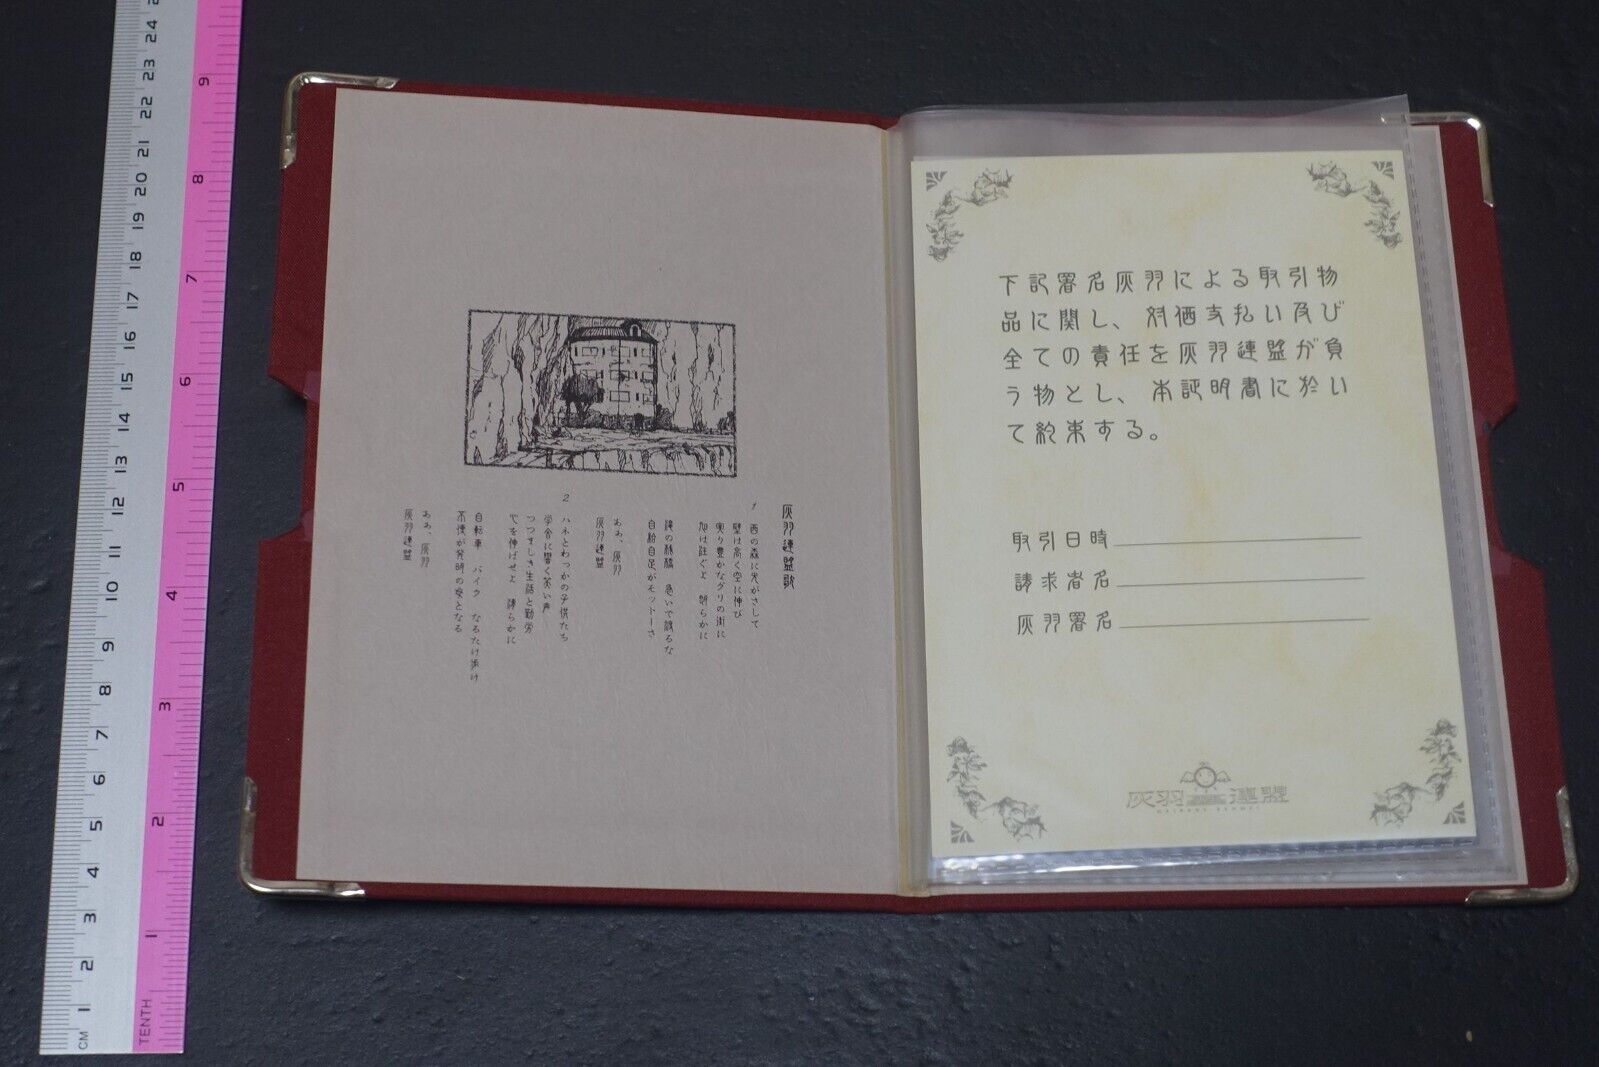 灰羽連盟歌
1
西の森に光がさして
壁は高く空に伸び
実り豊かなグリの街に
旭は註ぐよ 明らかに
自給自足がモットーさ
ああ、灰羽
灰羽連盟
2
ハネとわっかの子供たち
学舎に響く笑い声
つつましき生活と勤労
心を伸ばせよ 清らかに
自転車 バイク なるたけ歩け
不便が発明の母となる
ああ、灰羽
灰羽連盟
下記署名灰羽による取引物
品に関し、対価支払い及び
全ての責任を灰羽連盟が負
う物とし、本証明書に於い
て約束する。
取引日時
請求者名
灰羽署名
灰羽連盟
HAIBANE RENMEI
CM 1 2 3 4 5 6 7 8 9 10 11 12 13 14 15 16 17 18 19 20 21 22 23 24
TENTH 1 2 3 4 5 6 7 8 9